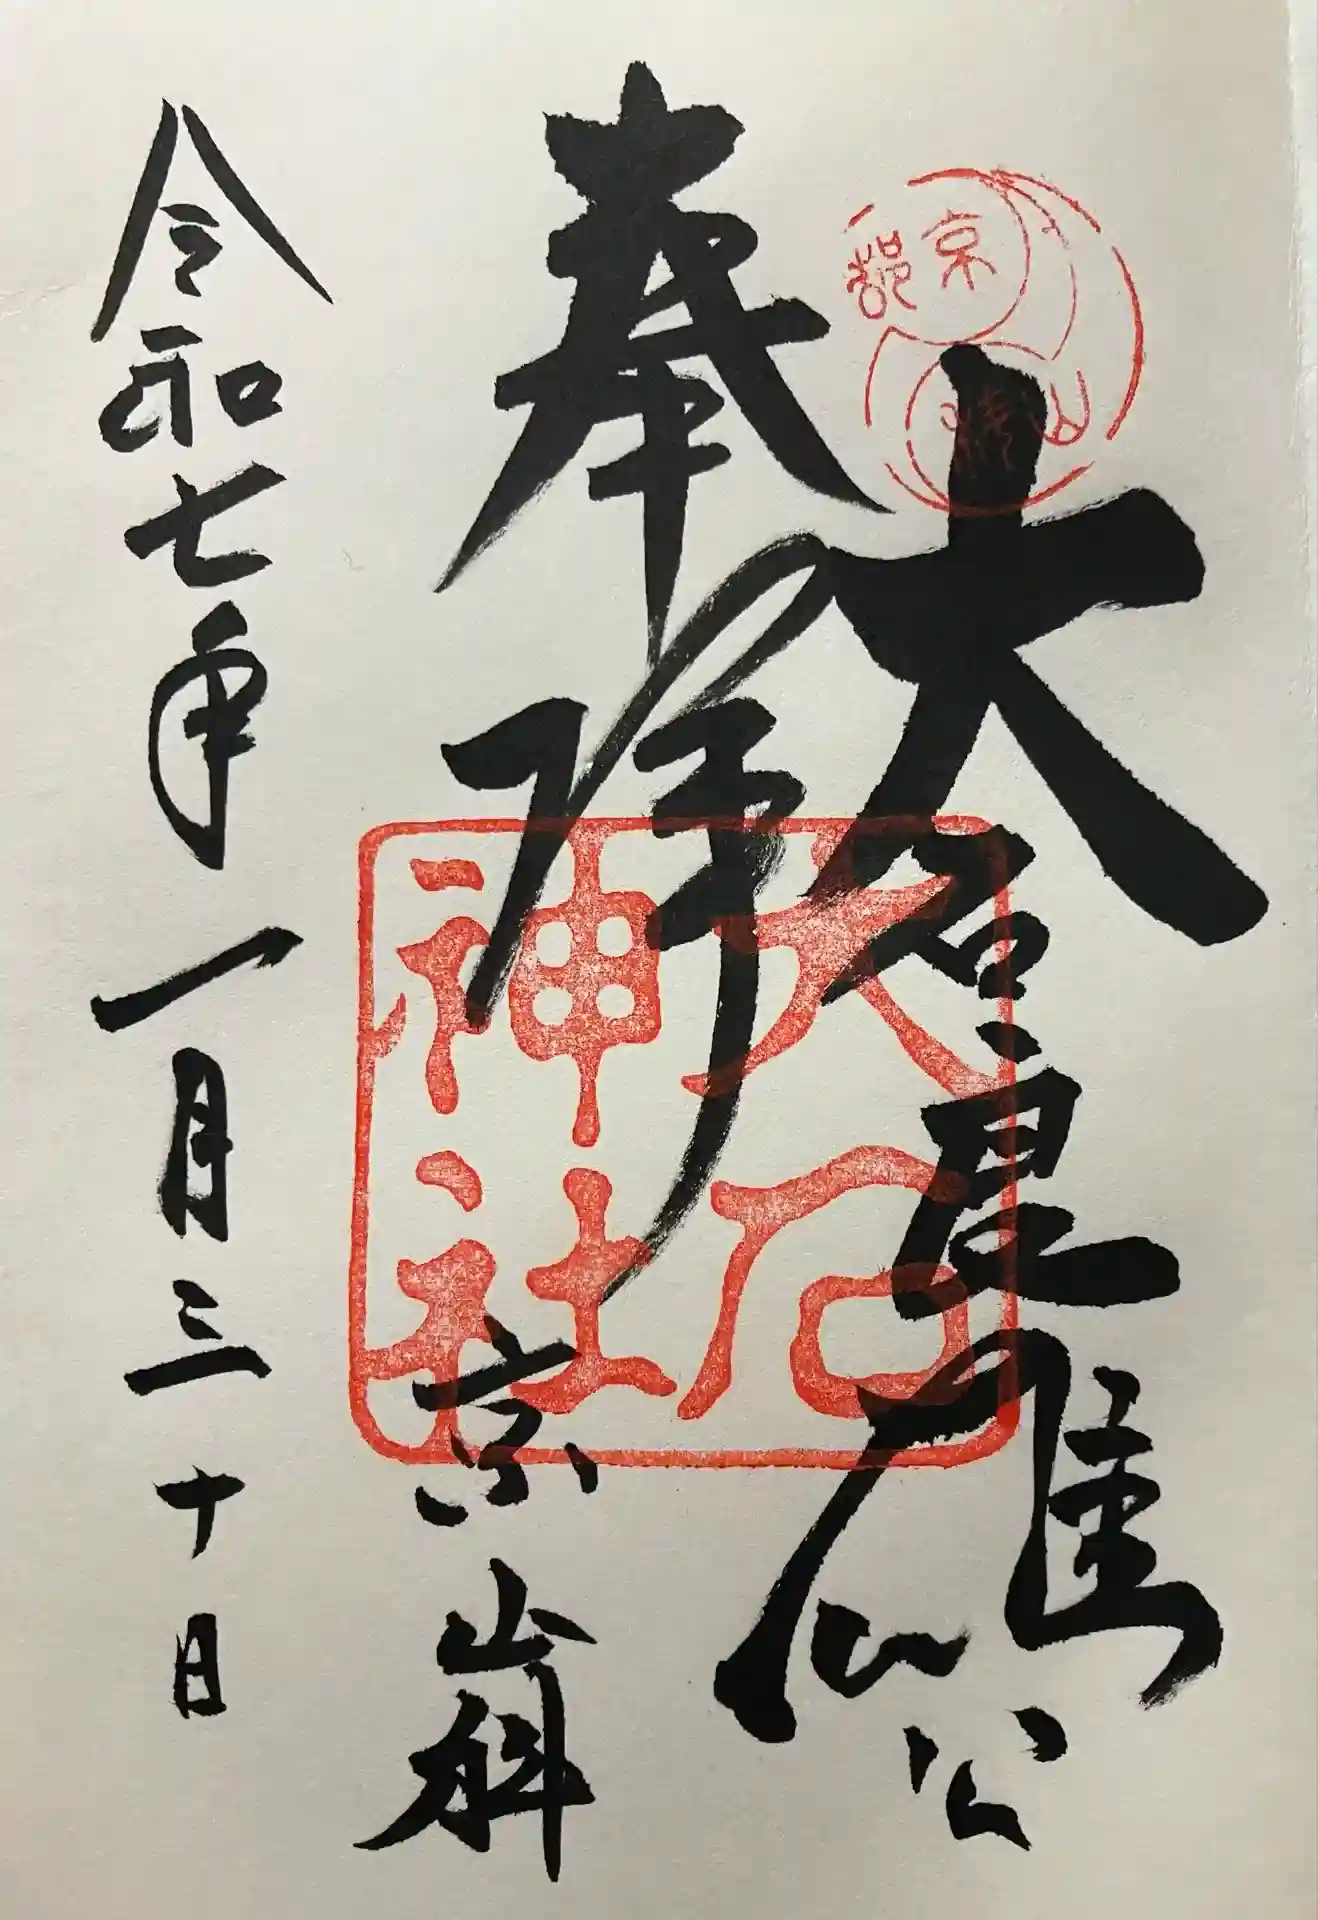 京都
大石良雄公
奉拝
京山科
大石神社
令和七年一月三十日